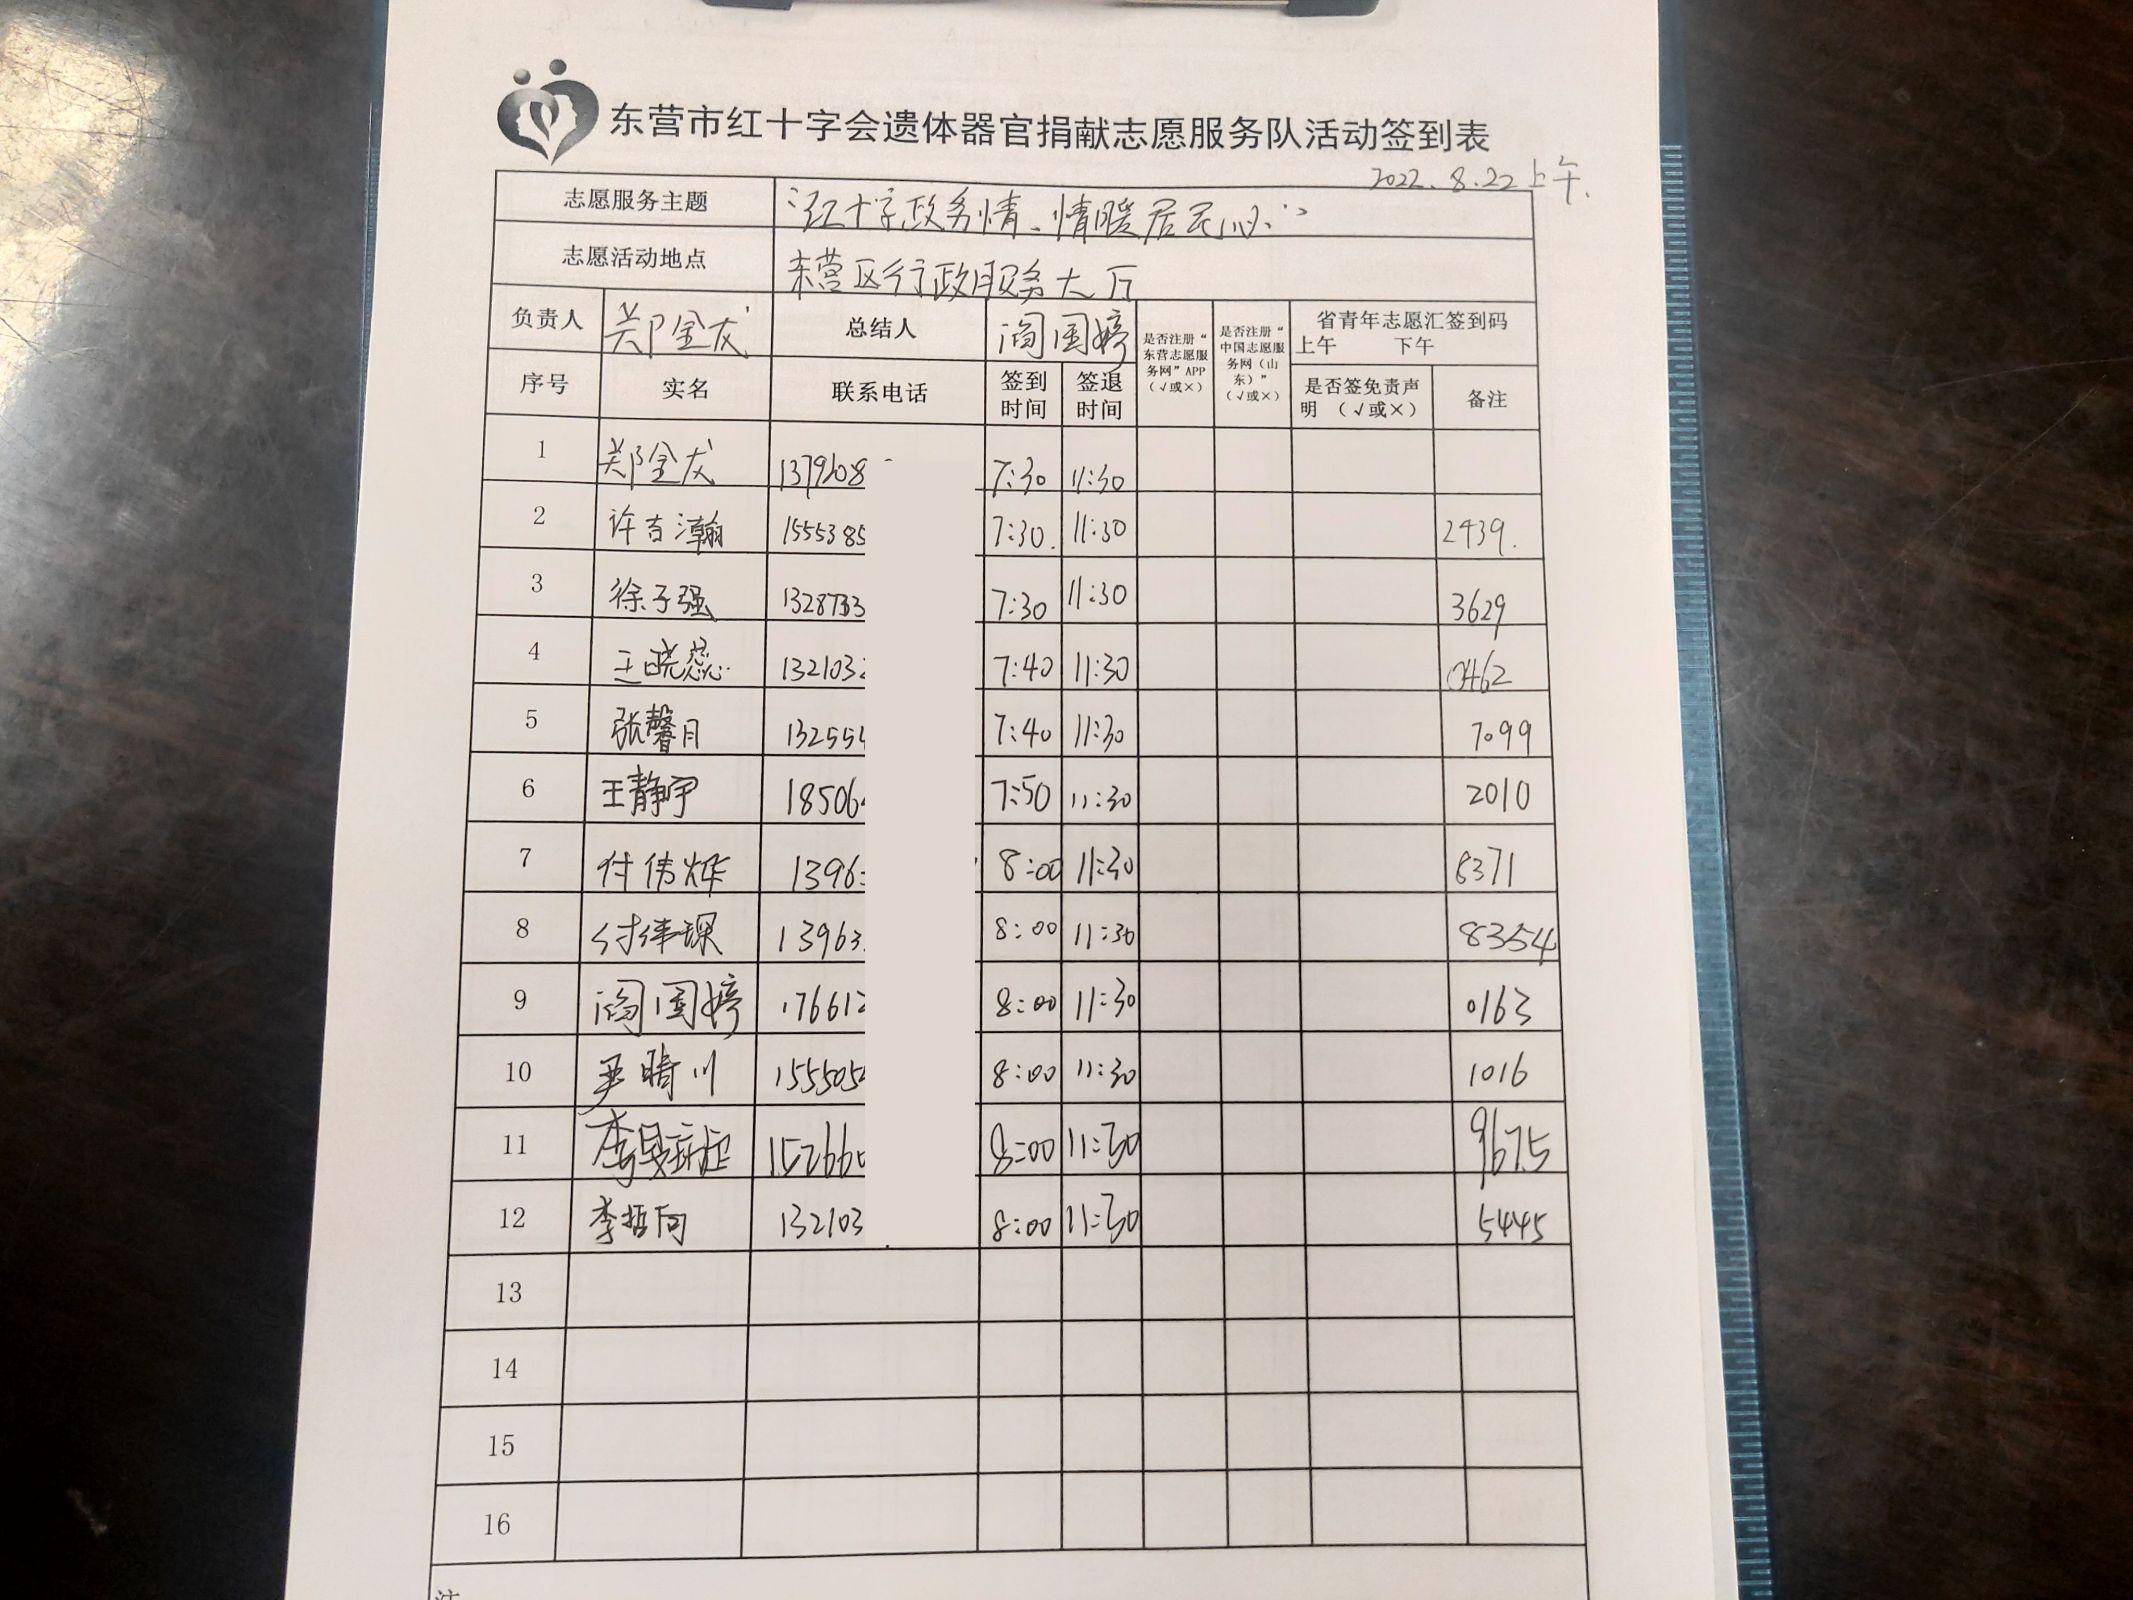 东营市红十字会遗体器官捐献志愿服务队活动签到表
2022.8.22上午.
志愿服务主题 “红十字政务情、情暖居民心”
志愿活动地点 东营区行政服务大厅
负责人 郑金友 总结人 阎国婷 是否注册“东营志愿服务网”APP（√或×） 是否注册“中国志愿服务网（山东）”（√或×） 省青年志愿汇签到码 上午 下午
序号 实名 联系电话 签到时间 签退时间 是否签免责声明（√或×） 备注
1 郑金友 1379208 7:30 11:30
2 许百瀚 1555385 7:30. 11:30 2439.
3 徐子强 1328733 7:30 11:30 3629
4 王晓蕊 132103 7:40 11:30 0462
5 张馨月 13255 7:40 11:30 7099
6 王静宇 18506 7:50 11:30 2010
7 付伟烨 1396 8:00 11:30 8371
8 付伟琛 13963 8:00 11:30 8354
9 阎国婷 17661 8:00 11:30 0163
10 晴川 155505 8:00 11:30 1016
11 152660 8:00 11:30 9675
12 李哲向 132103 8:00 11:30 5445
13
14
15
16